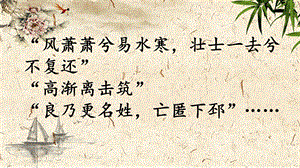 “风萧萧兮易水寒，壮士一去兮
不复还”
“高渐离击筑”
“良乃更名姓，亡匿下邳”……